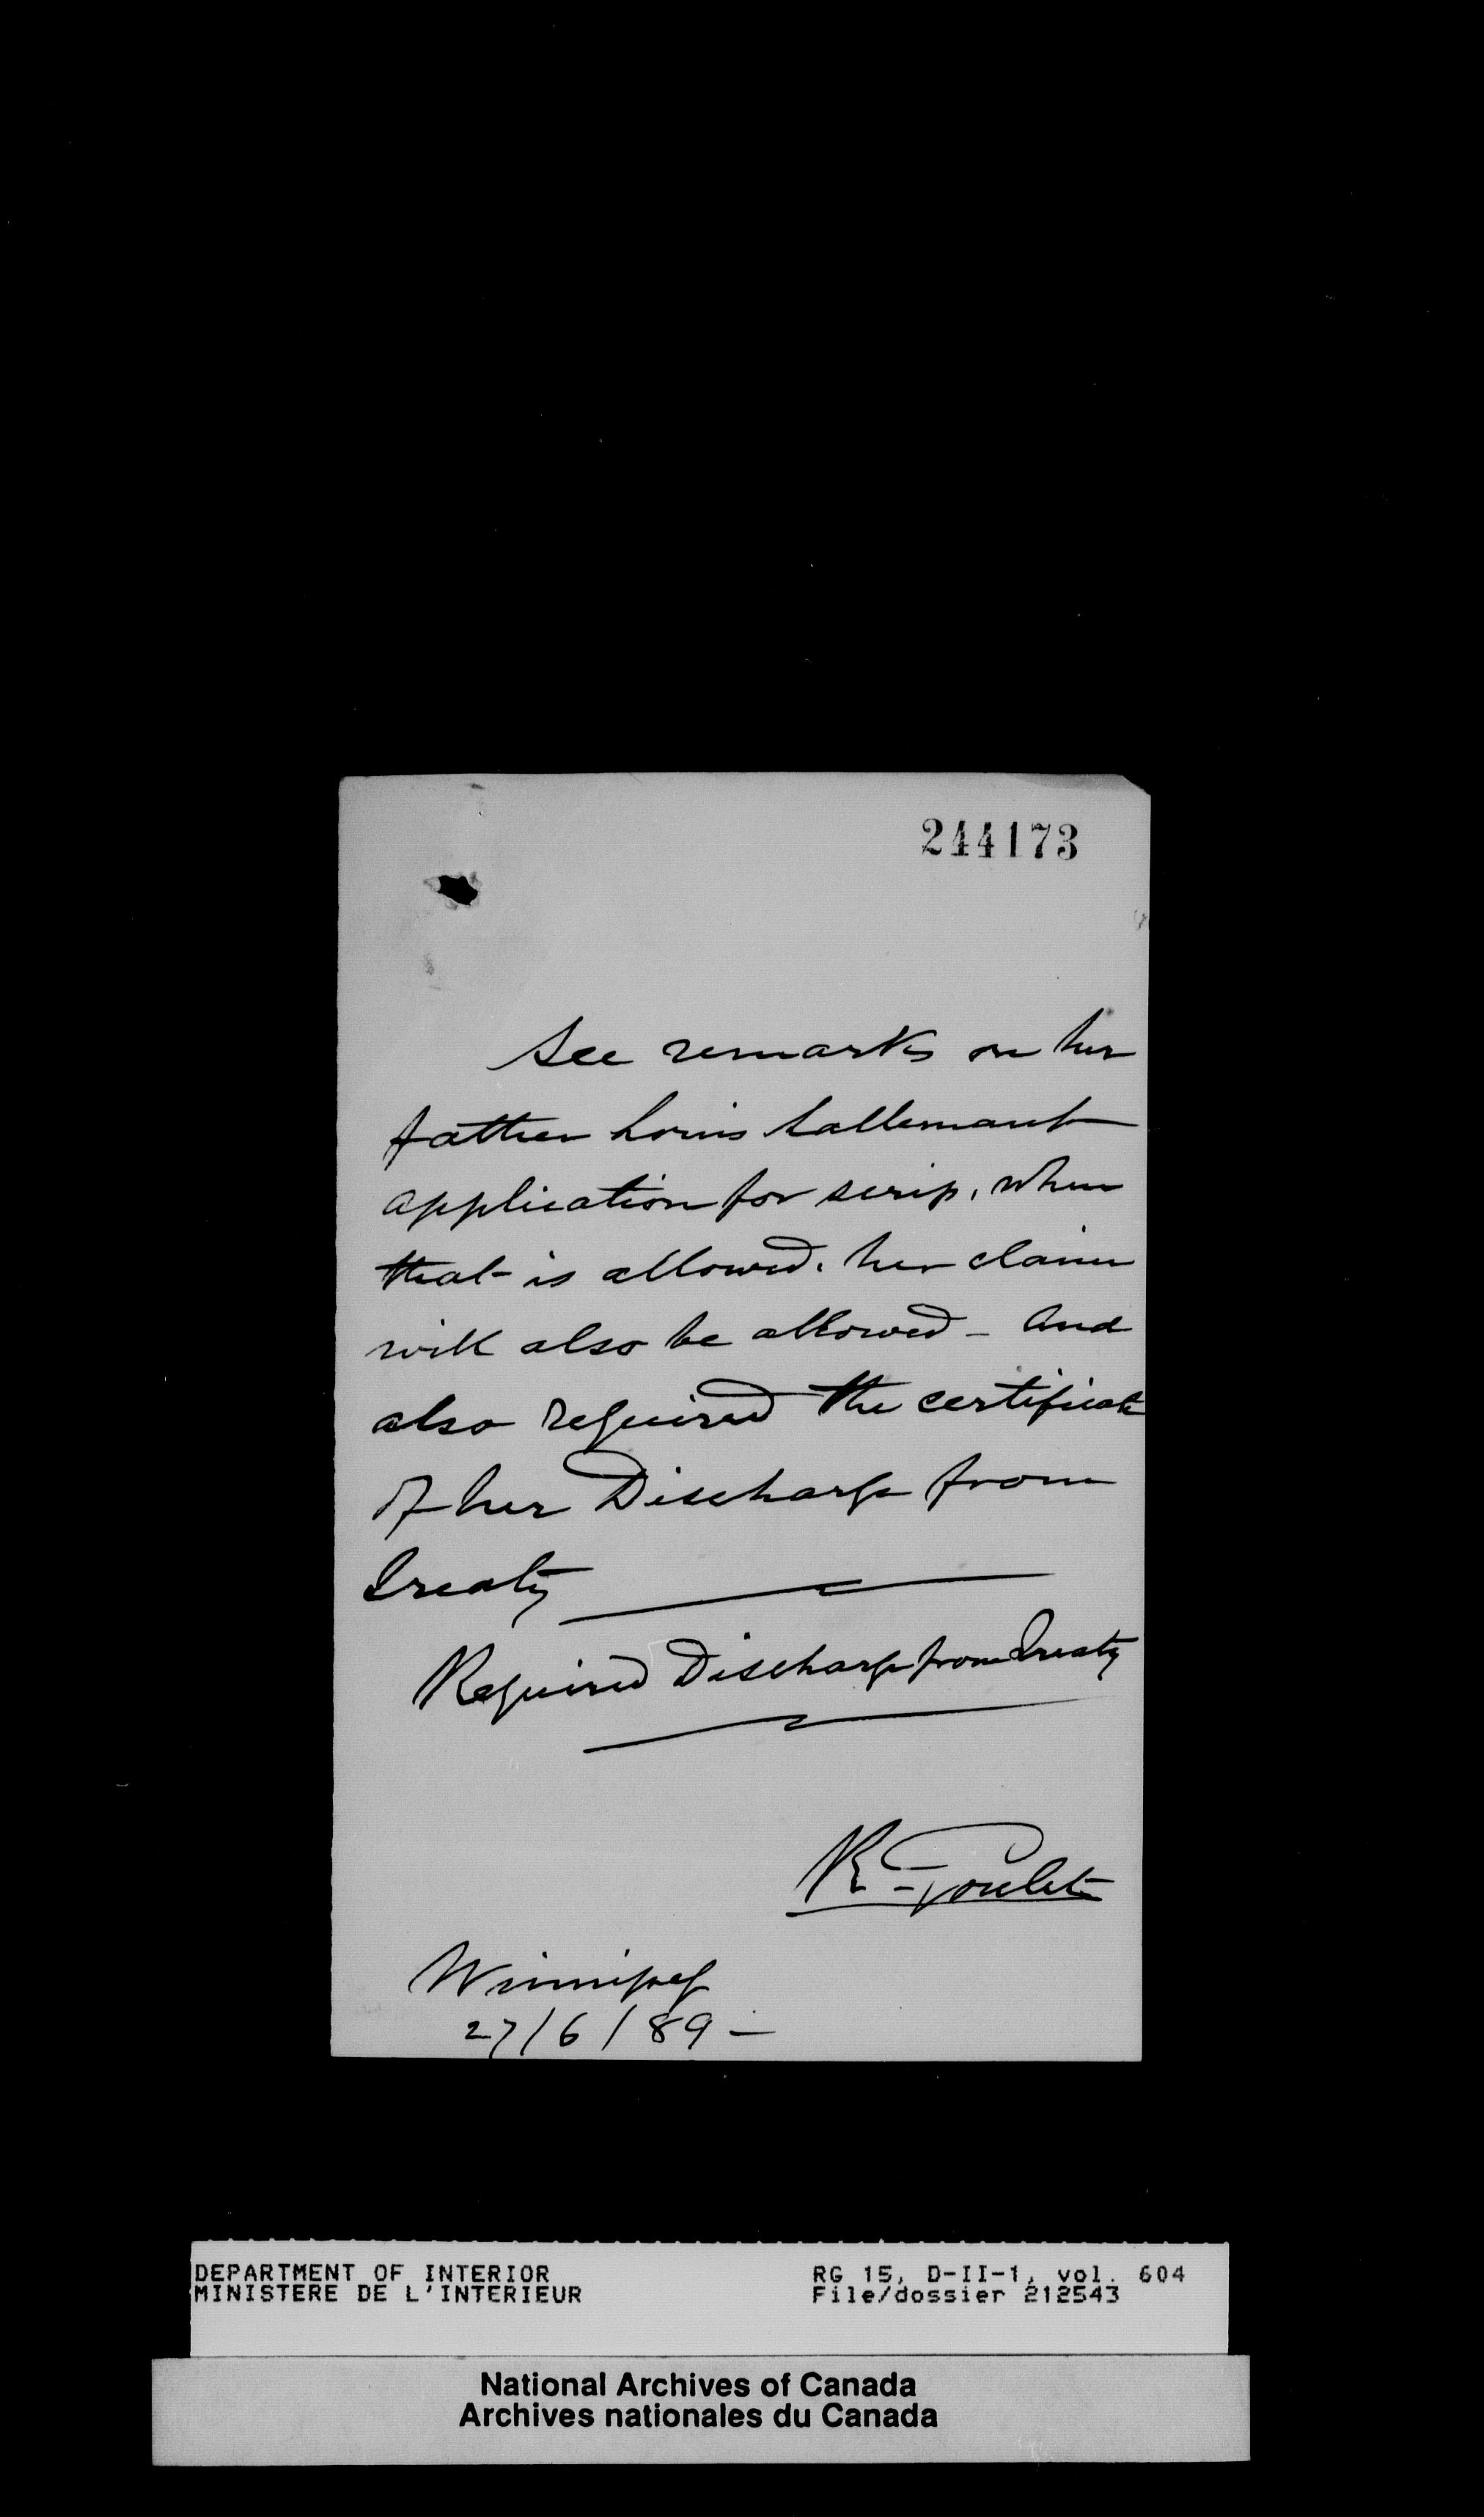 244173
See remarks on her
father Louis Lallemant
application for scrip, when
that is allowed. her claim
will also be allowed - and
also required the certificate
of her Discharge from
Treaty
Required Discharge from Treaty
R. Goulet
Winnipeg
27/6/89 -
DEPARTMENT OF INTERIOR RG 15, D-II-1, vol. 604
MINISTERE DE L'INTERIEUR File/dossier 212543
National Archives of Canada
Archives nationales du Canada